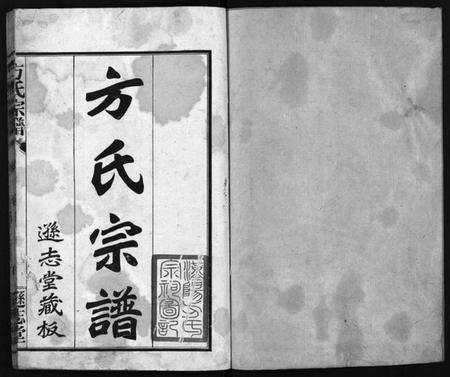 方氏宗譜
遜志堂藏板
方氏宗譜
遜志堂